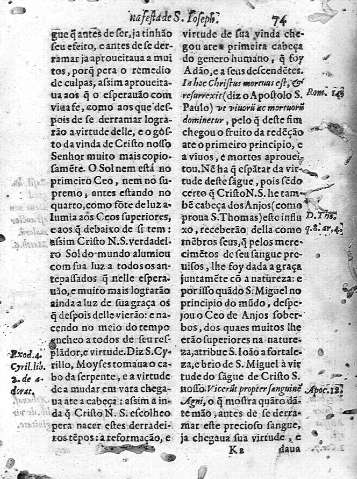 na festa de S. Ioseph.
74
gue q̃ antes de ser, ja tinhão
seu efeito, e antes de se der-
ramar ja aproueitaua a mui-
tos, porq̃ pera o remedio
de culpas, assim aproueita-
ua aos q̃ o esperauão com
viua fe, como aos que des-
pois de se derramar logra-
rão a virtude delle, e o gos-
to da vinda de Cristo nosso
Senhor muito mais copio-
samẽte. O Sol nem està no
primeiro Ceo, nem no su-
premo, antes estando no
quarto, como fõte de luz a-
lumia aos Ceos superiores,
e aos q̃ debaixo de si tem:
assim Cristo N. S. verdadei-
ro Sol do mundo alumiou
com sua luz a todos os an-
tepassados q̃ nelle espera-
uão, e muito mais lograrão
ainda a luz de sua graça os
q̃ despois delle vierão: e na-
cendo no meio do tempo
ancheo a todos de seu res-
plãdor, e virtude. Diz S. Cy-
rillo, Moyses tomaua o ca-
bo da serpente, e a virtude
de a mudar em vara chega-
ua ate a cabeça: assim a in-
da q̃ Cristo N. S. escolheo
pera nacer estes derradei-
ros tẽpos: a reformação, e
Exod. 4.
Cyril. lib.
2. de a-
dorat.
virtude de sua vinda che-
gou ate a primeira cabeça
do genero humano, q̃ foy
Adão, e a seus descendẽtes.
In hoc Christus mortuus est, &
resurrexit (diz o Apostolo S.
Paulo) ut viuorũ ac mortuorũ
dominetur, pelo q̃ deste fim
chegou o fruito da redẽção
ate o primeiro principio, e
a viuos, e mortos aprouei-
tou. Nẽ ha q̃ espãtar da vir-
tude deste sãgue, pois sẽdo
certo q̃ Cristo N. S. he tam-
bẽ cabeça dos Anjos (como
proua S. Thomas) este influ-
xo, receberão della como
mẽbros seus, q̃ pelos mere-
cimẽtos de seu sangue pre-
uistos, lhe foy dada a graça
juntamẽte cõ a natureza: e
por isso quãdo S. Miguel no
principio do mũdo, despe-
jou o Ceo de Anjos sober-
bos, dos quaes muitos lhe
erão superiores na nature-
za, atribue S. Ioão a fortale-
za, e brio de S. Miguel à vir-
tude do sãgue de Cristo S.
nosso. Vicerũt propter sanguinẽ
Agni, o q̃ mostra quãto dã-
te mão, antes de se derra-
mar este precioso sangue,
ja chegaua sua virtude, e
Rom. 14.
D. Tho.
q. 8. ar. 4.
Apoc. 12.
K 2
daua